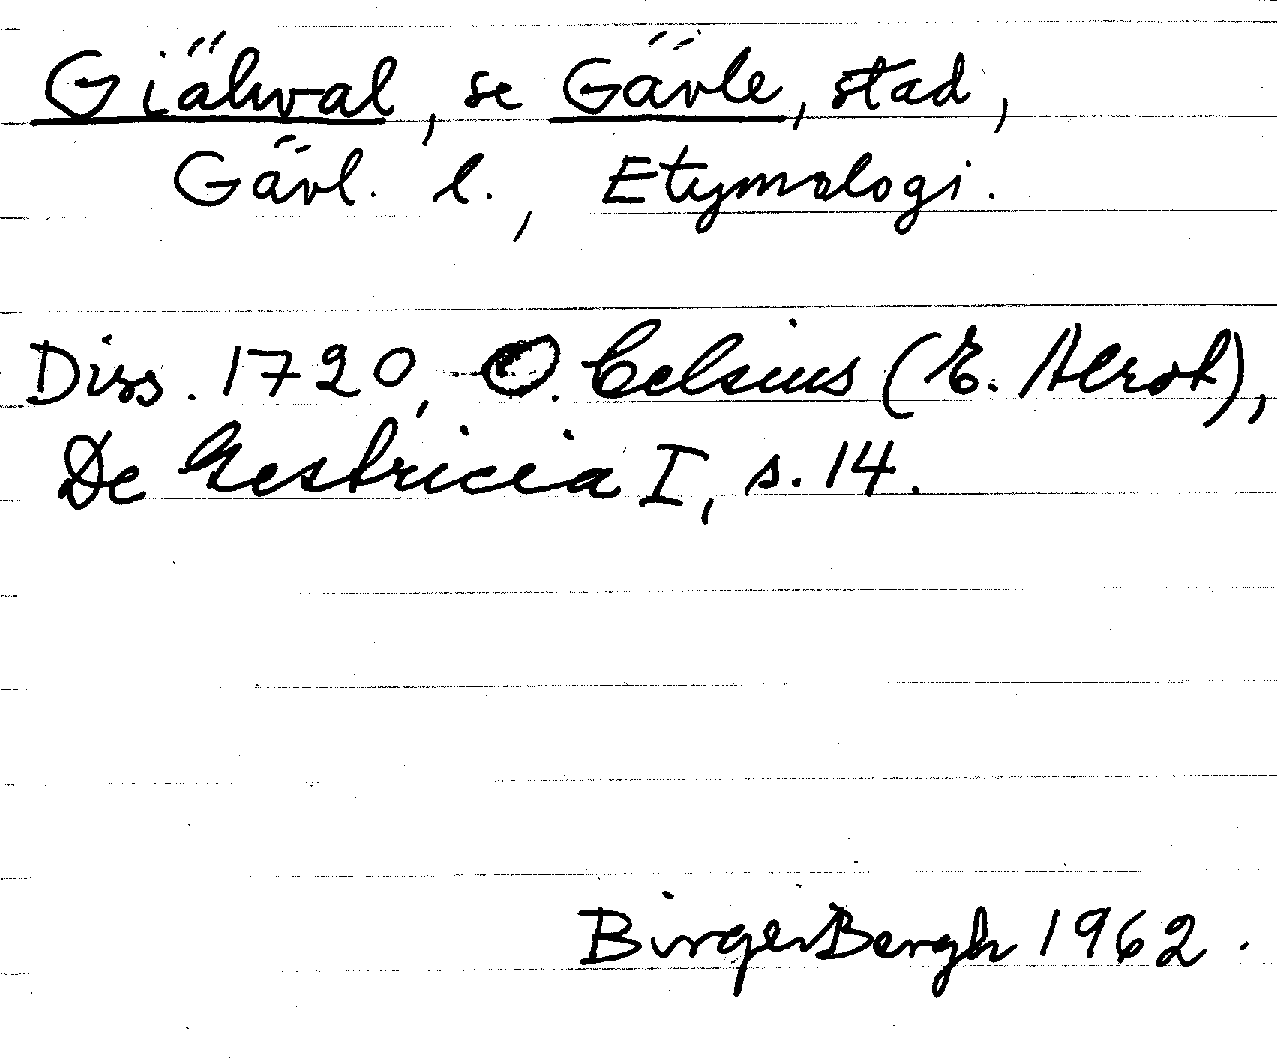 Giähwal, se Gävle, stad,
Gävl. l., Etymologi.
Diss. 1720, O. Celsius (E. Alroth),
De Gestricia I, s. 14.
Birger Bergh 1962.